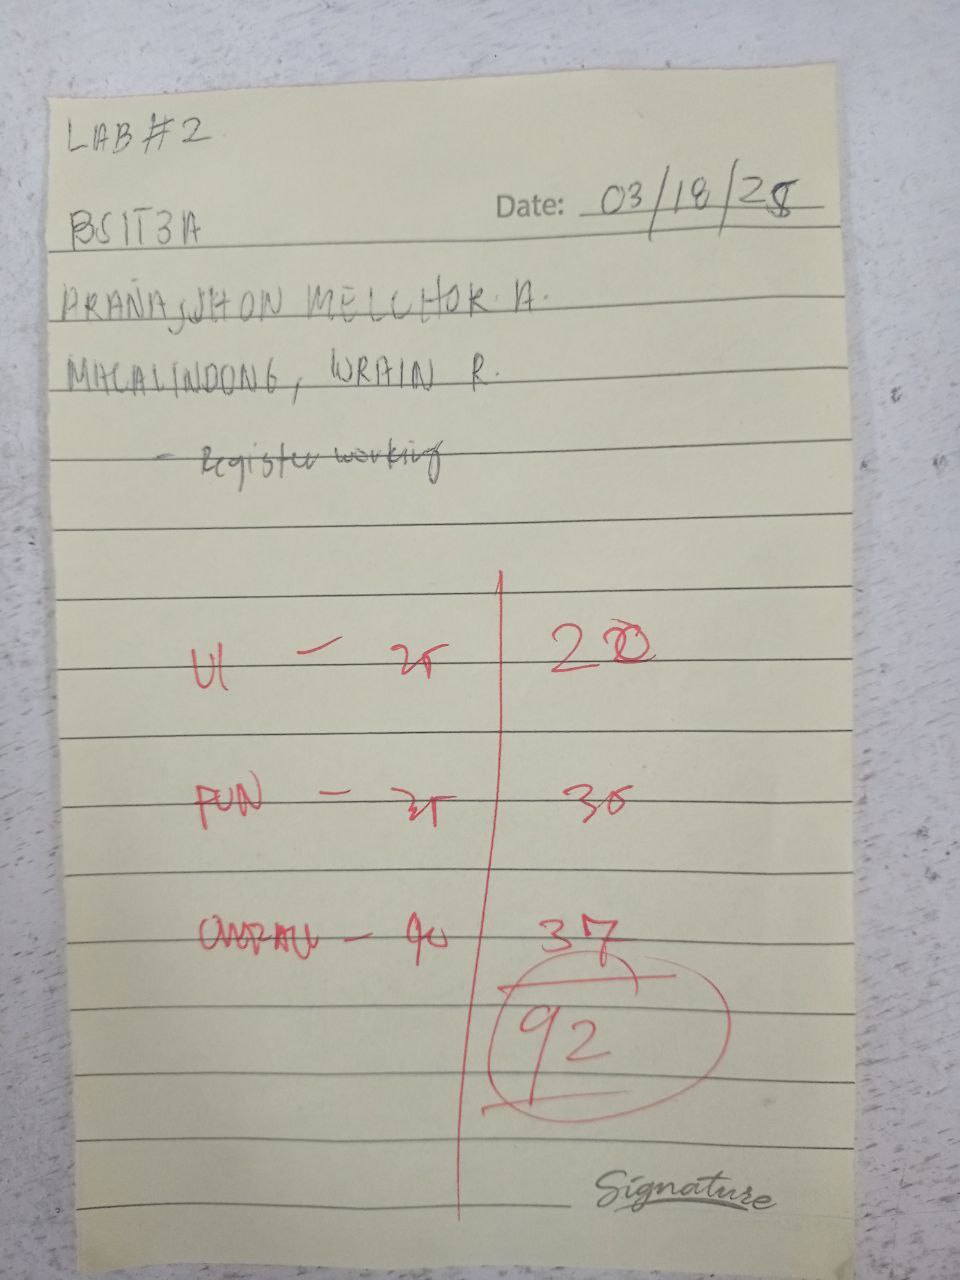 LAB #2
Date: 03/18/25
BSIT3A
ARAÑA, JHON MELCHOR A.
MACALINDONG, WRAIN R.
- Register working
UI - 25 20
FUN - 35 35
OVERALL - 40 37
92
Signature